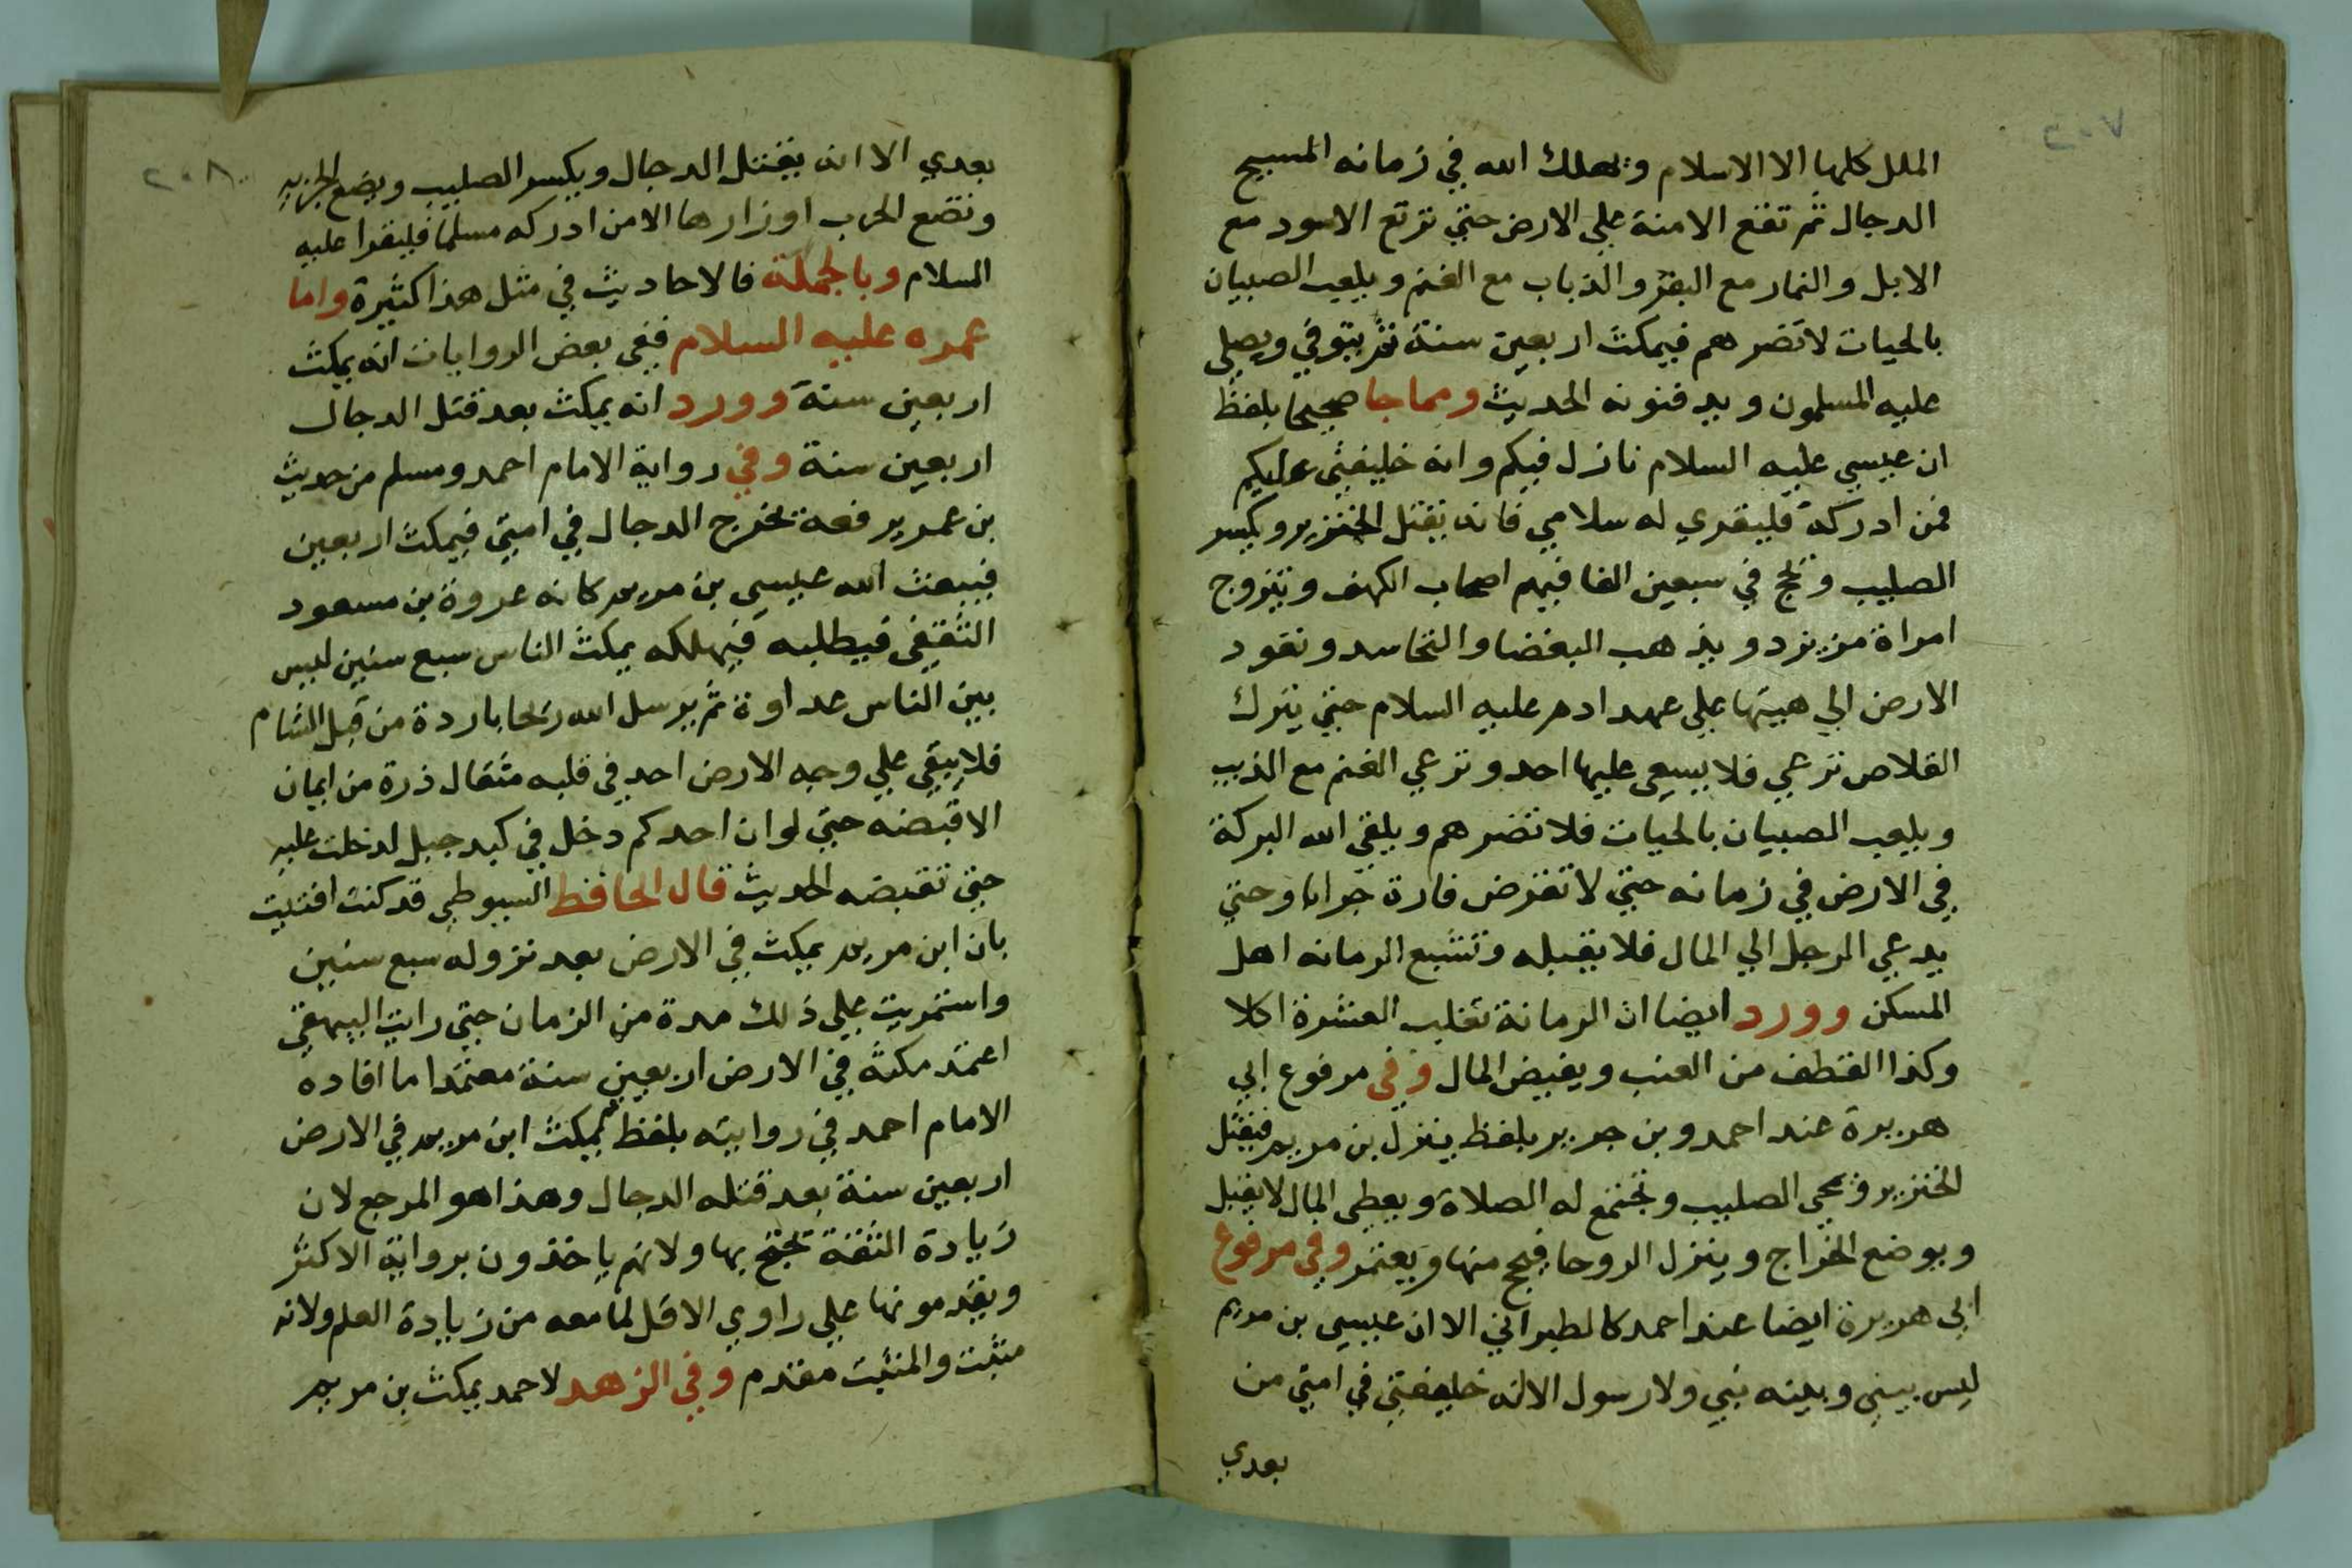 الملل كلها الا الاسلام ويهلك الله في زمانه المسيح
الدجال ثم تقع الامنة علي الارض حتي ترتع الاسود مع
الابل والنمار مع البقر والذباب مع الغنم ويلعب الصبيان
بالحيات لا تضرهم فيمكث اربعين سنة ثم يتوفي ويصلي
عليه المسلمون ويدفنونه الحديث ومما جا صحيحا بلفظ
ان عيسي عليه السلام نازل فيكم وانه خليفتي عليكم
فمن ادركه فليقري له سلامي فانه يقتل الخنزير ويكسر
الصليب ويحج في سبعين الفا فيهم اصحاب الكهف ويتزوج
امراة من يزد ويذهب البغضا والتحاسد وتعود
الارض الي هيتها علي عهد ادم عليه السلام حتي يترك
القلاص ترعي فلا يسعي عليها احد وترعي الغنم مع الذيب
ويلعب الصبيان بالحيات فلا تضرهم ويلقي الله البركة
في الارض في زمانه حتي لا تقرض فارة جرابا وحتي
يدعي الرجل الي المال فلا يقبله وتشبع الرمانه اهل
المسكن وورد ايضا ان الرمانة تغلب العشرة اكلا
وكذا القطف من العنب ويفيض المال وفي مرفوع ابي
هريرة عند احمد وبن جرير بلفظ ينزل بن مريم فيقتل
الخنزير ويمحي الصليب وتجتمع له الصلاة ويعطي المال لا يقبل
ويوضع الخراج وينزل الروحا فيحج منها ويعتمر وفي مرفوع
ابي هريرة ايضا عند احمد كالطبراني الا ان عيسي بن مريم
ليس بيني وبينه نبي ولا رسول الا انه خليفتي في امتي من
بعدي
٢٠٨
بعدي الا انه يقتل الدجال ويكسر الصليب ويضع الجزيه
وتضع الحرب اوزارها الا من ادركه مسلما فليقرا عليه
السلام وبالجملة فالاحاديث في مثل هذا كثيرة واما
عمره عليه السلام ففي بعض الروايات انه يمكث
اربعين سنة وورد انه يمكث بعد قتل الدجال
اربعين سنة وفي رواية الامام احمد ومسلم من حديث
بن عمر يرفعه يخرج الدجال في امتي فيمكث اربعين
فيبعث الله عيسي بن مريم كانه عروة بن مسعود
الثقيفي فيطلبه فيهلكه يمكث الناس سبع سنين ليس
بين الناس عداوة ثم يرسل الله ريحا باردة من قبل الشام
فلا يبقي علي وجه الارض احد في قلبه مثقال ذرة من ايمان
الا قبضه حتي لو ان احدكم دخل في كبد جبل لدخلت عليه
حتي تقبضه الحديث قال الحافظ السيوطي قد كنت افتيت
بان ابن مريم يمكث في الارض بعد نزوله سبع سنين
واستمريت علي ذلك مدة من الزمان حتي رايت البيهقي
اعتمد مكثه في الارض اربعين سنة معتمدا ما افاده
الامام احمد في روايته بلفظ ثم يمكث ابن مريم في الارض
اربعين سنة بعد قتله الدجال وهذا هو المرجع لان
زيادة الثقة تحتج بها ولانهم ياخذون برواية الاكثر
ويقدمونها علي راوي الاقل لما معه من زيادة العلم ولانه
مثبت والمثبت مقدم وفي الزهد لاحمد يمكث بن مريم